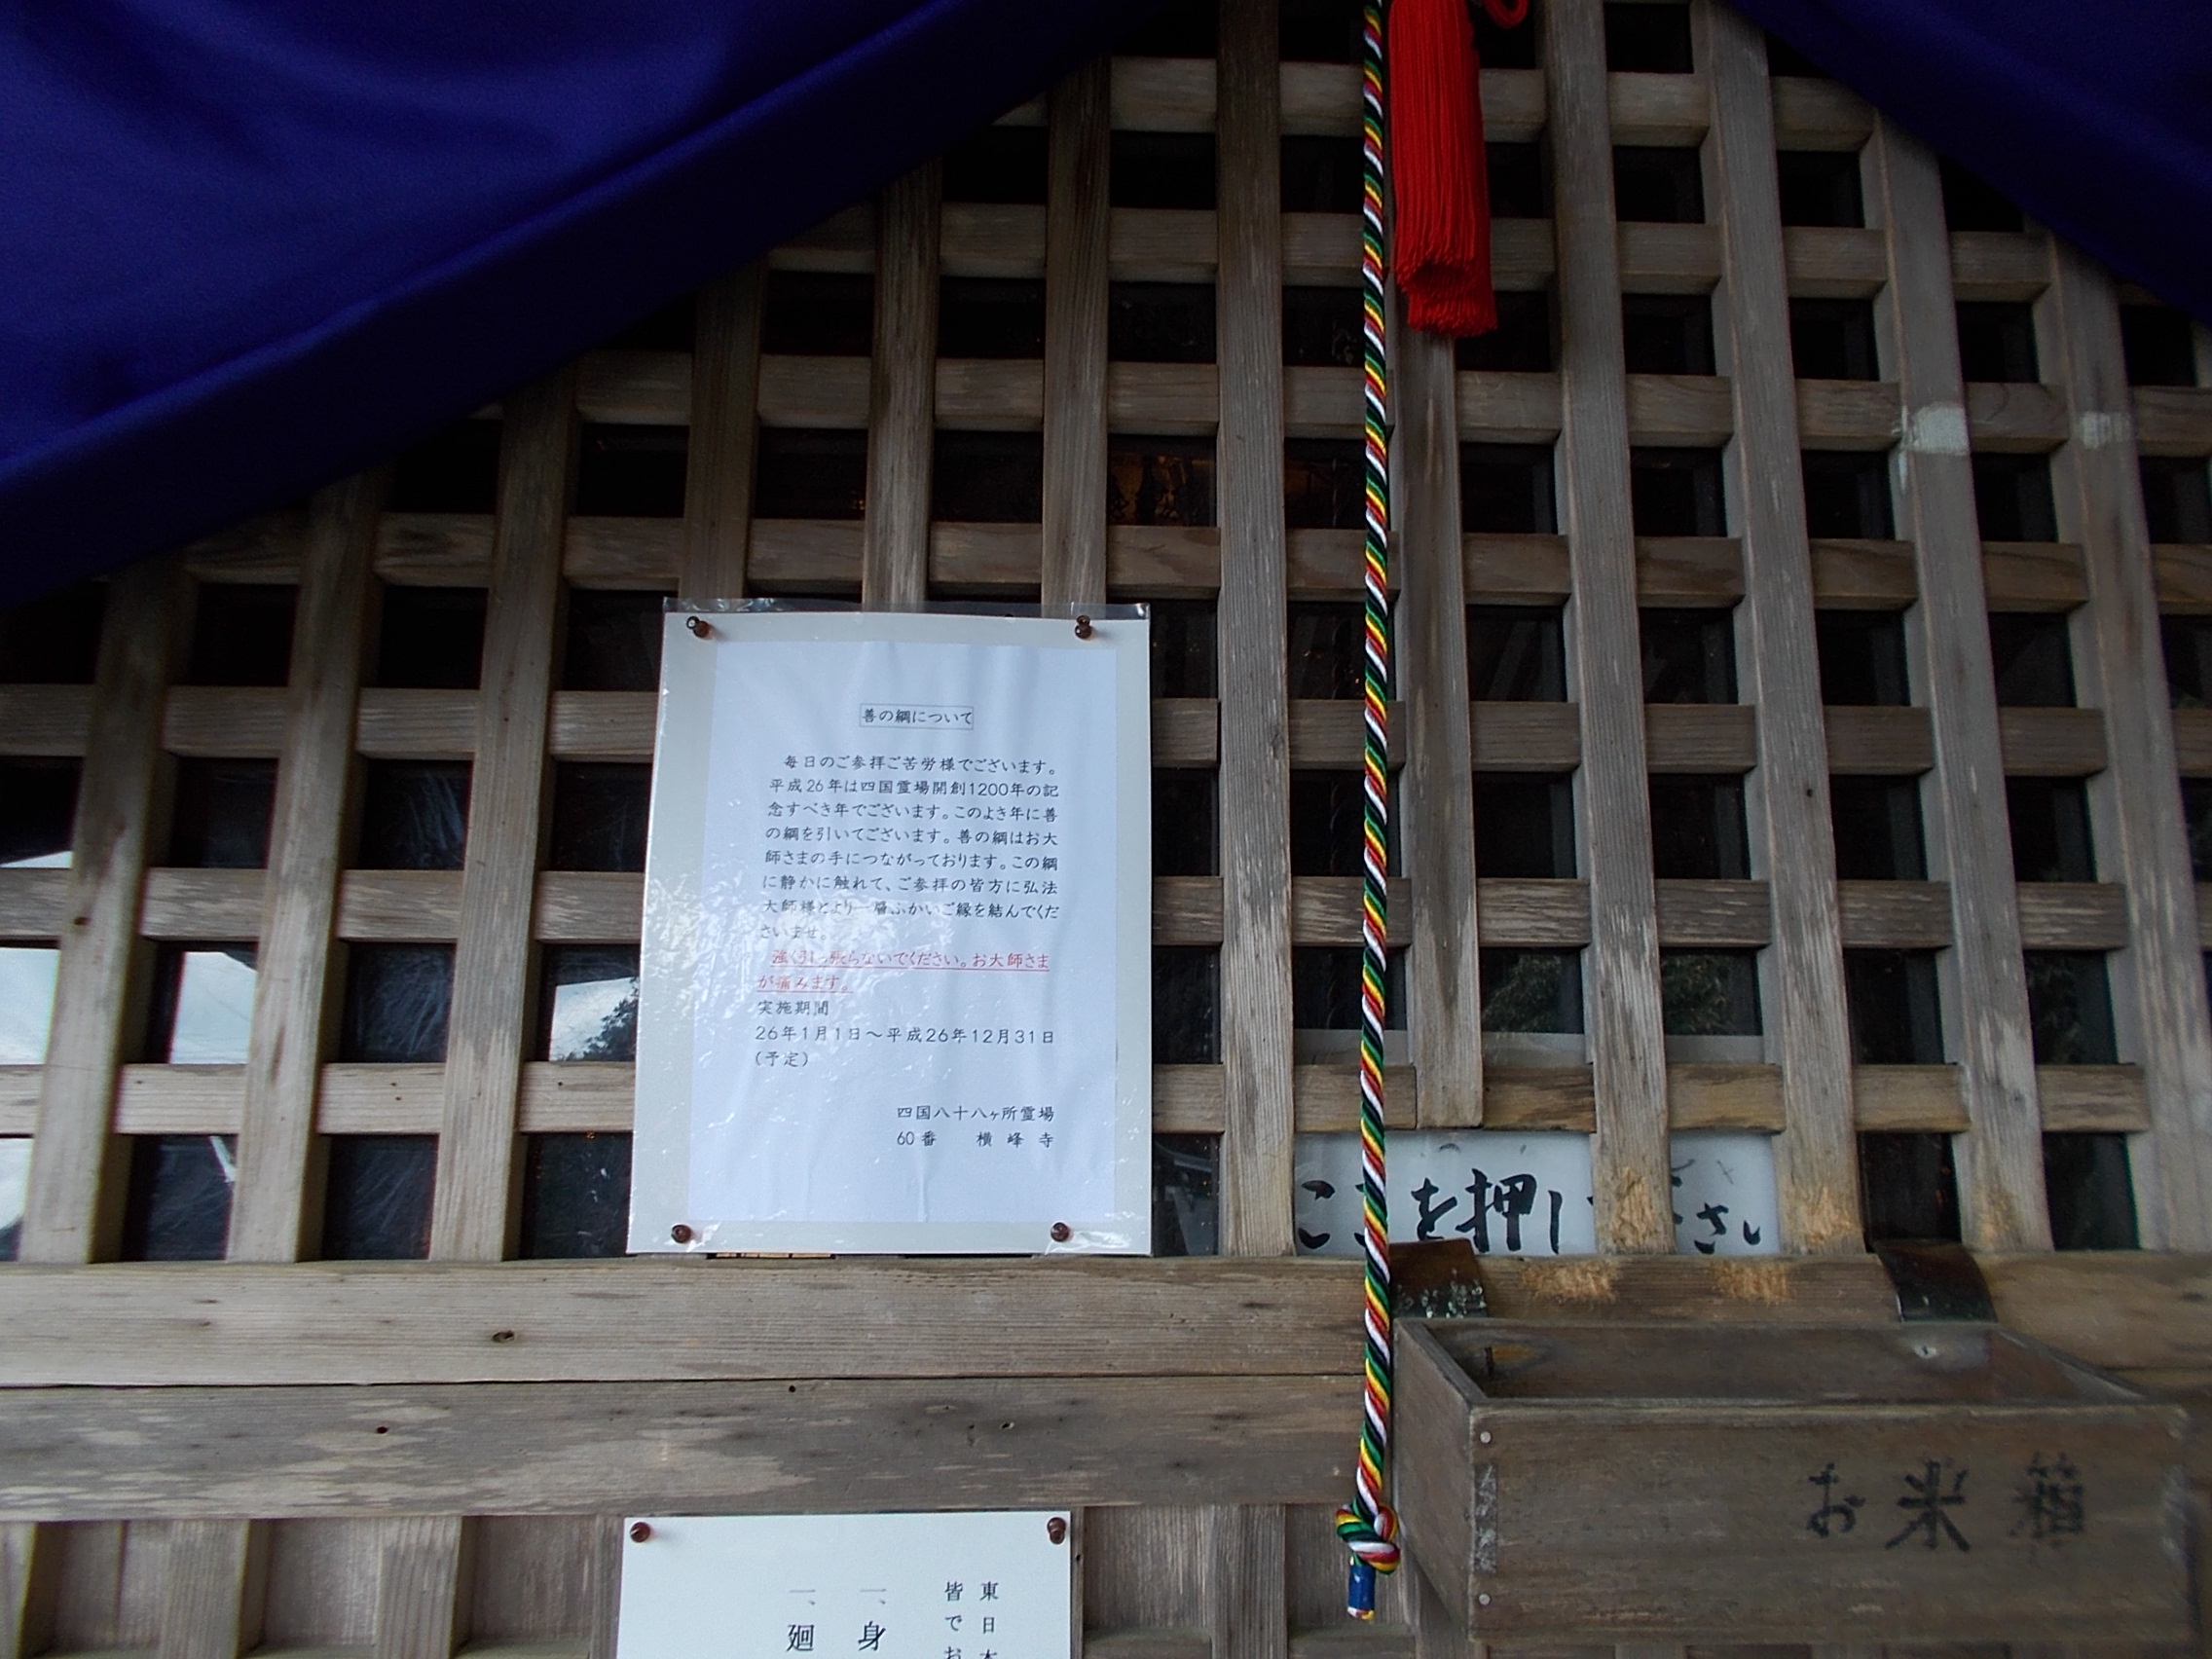 善の綱について
毎日のご参拝ご苦労様でございます。
平成26年は四国霊場開創1200年の記
念すべき年でございます。このよき年に善
の綱を引いてございます。善の綱はお大
師さまの手につながっております。この綱
に静かに触れて、ご参拝の皆方に弘法
大師様とより一層ふかいご縁を結んでくだ
さいませ。
強く引っ張らないでください。お大師さま
が痛みます。
実施期間
26年1月1日～平成26年12月31日
(予定)
四国八十八ヶ所霊場
60番 横峰寺
ここを押し さい
お米箱
東日本
皆でお
一、身
一、廻